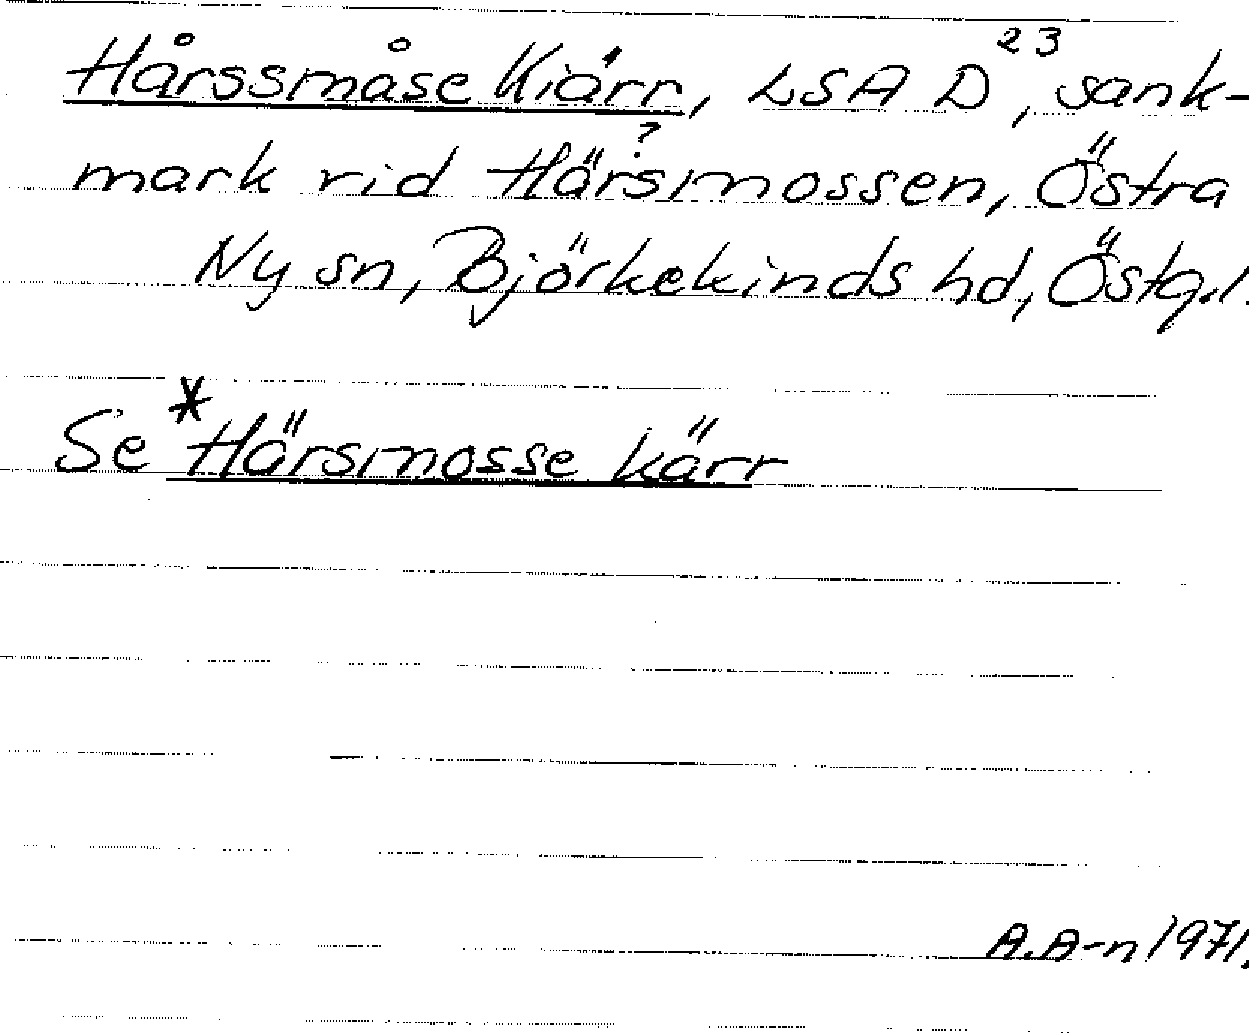 Hårssmåse Kiárr, LSA D²³, sank-
mark vid Härs?mossen, Östra
Ny sn, Björkekinds hd, Östg.l.
Se *Härsmosse kärr
A.A-n 1971.